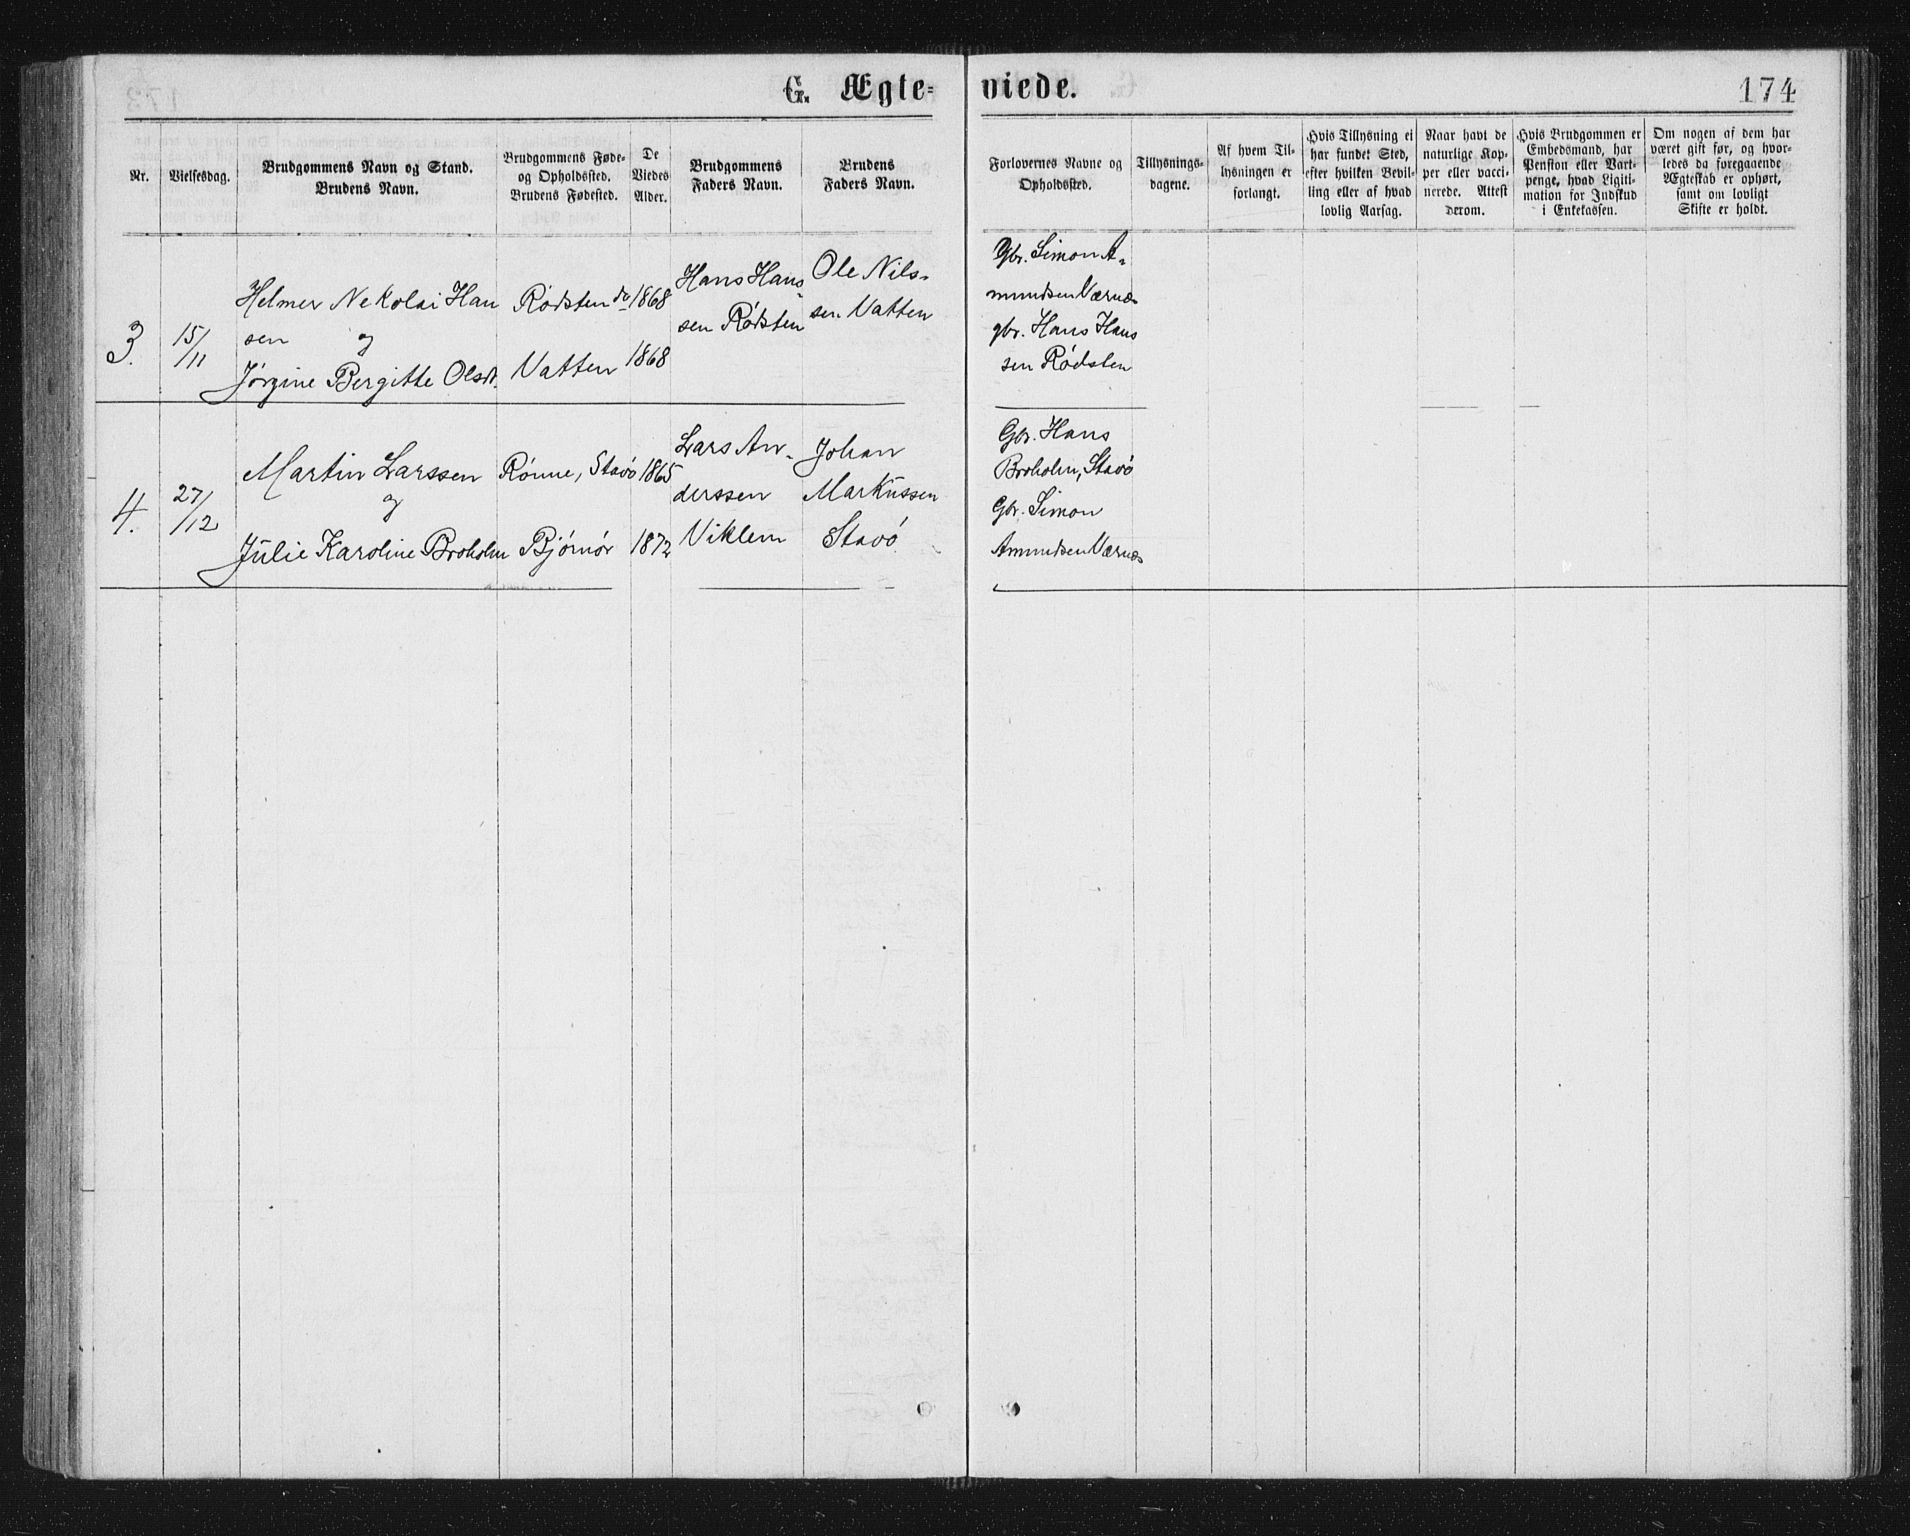 G. Ægte-
viede.
174
Nr.
Vielsesdag.
Brudgommens Navn og Stand.
Brudens Navn.
Brudgommens Føde-
og Opholdssted.
Brudens Fødested.
De
Viedes
Alder.
Brudgommens
Faders Navn.
Brudens
Faders Navn.
Forlovernes Navne og
Opholdssted.
Tillysnings-
dagene.
Af hvem Til-
lysningen er
forlangt.
Hvis Tillysning ei
har fundet Sted,
efter hvilken Bevil-
ling eller af hvad
lovlig Aarsag.
Naar havt de
naturlige Kop-
per eller vacci-
nerede. Attest
derom.
Hvis Brudgommen er
Embedsmand, har
Pension eller Vart-
penge, hvad Ligiti-
mation for Indskud
i Enkekassen.
Om nogen af dem har
været gift før, og hvor-
ledes da foregaaende
Ægteskab er ophørt,
samt om lovligt
Skifte er holdt.
3.
15/11
Helmer Nekolai Han
sen og
Jørgine Bergitte Olsdt.
Rødsten do
Vatten
1868
1868
Hans Han-
sen Rødsten
Ole Nils-
sen Vatten
Gbr. Simon A-
mundsen Værnæs
gbr. Hans Hans
sen Rødsten
4.
27/12
Martin Larssen
og
Julie Karoline Broholm
Rønne, Stavø
Bjørnør
1865
1872
Lars An-
derssen
Viklem
Johan
Markussen
Stavø
Gbr. Hans
Broholm, Stavø
Gbr. Simon
Amundsen Værnæs